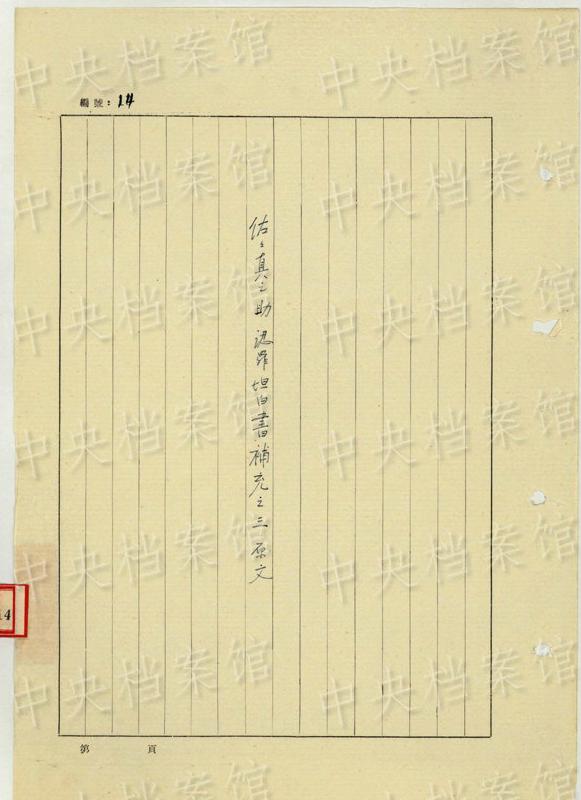 編號：14
佐々真之助 認罪坦白書補充之三 原文
第 頁
14
中央档案馆